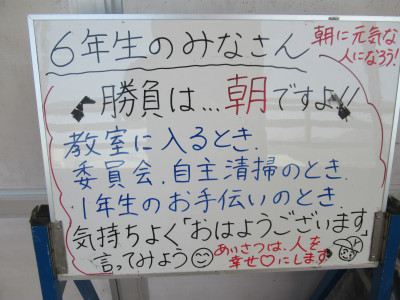 6年生のみなさん
朝に元気な
人になろう!
勝負は…朝ですよ!!
教室に入るとき.
委員会.自主清掃のとき.
1年生のお手伝いのとき.
気持ちよく「おはようございます」
言ってみよう☺
あいさつは、人を
幸せ♡にします